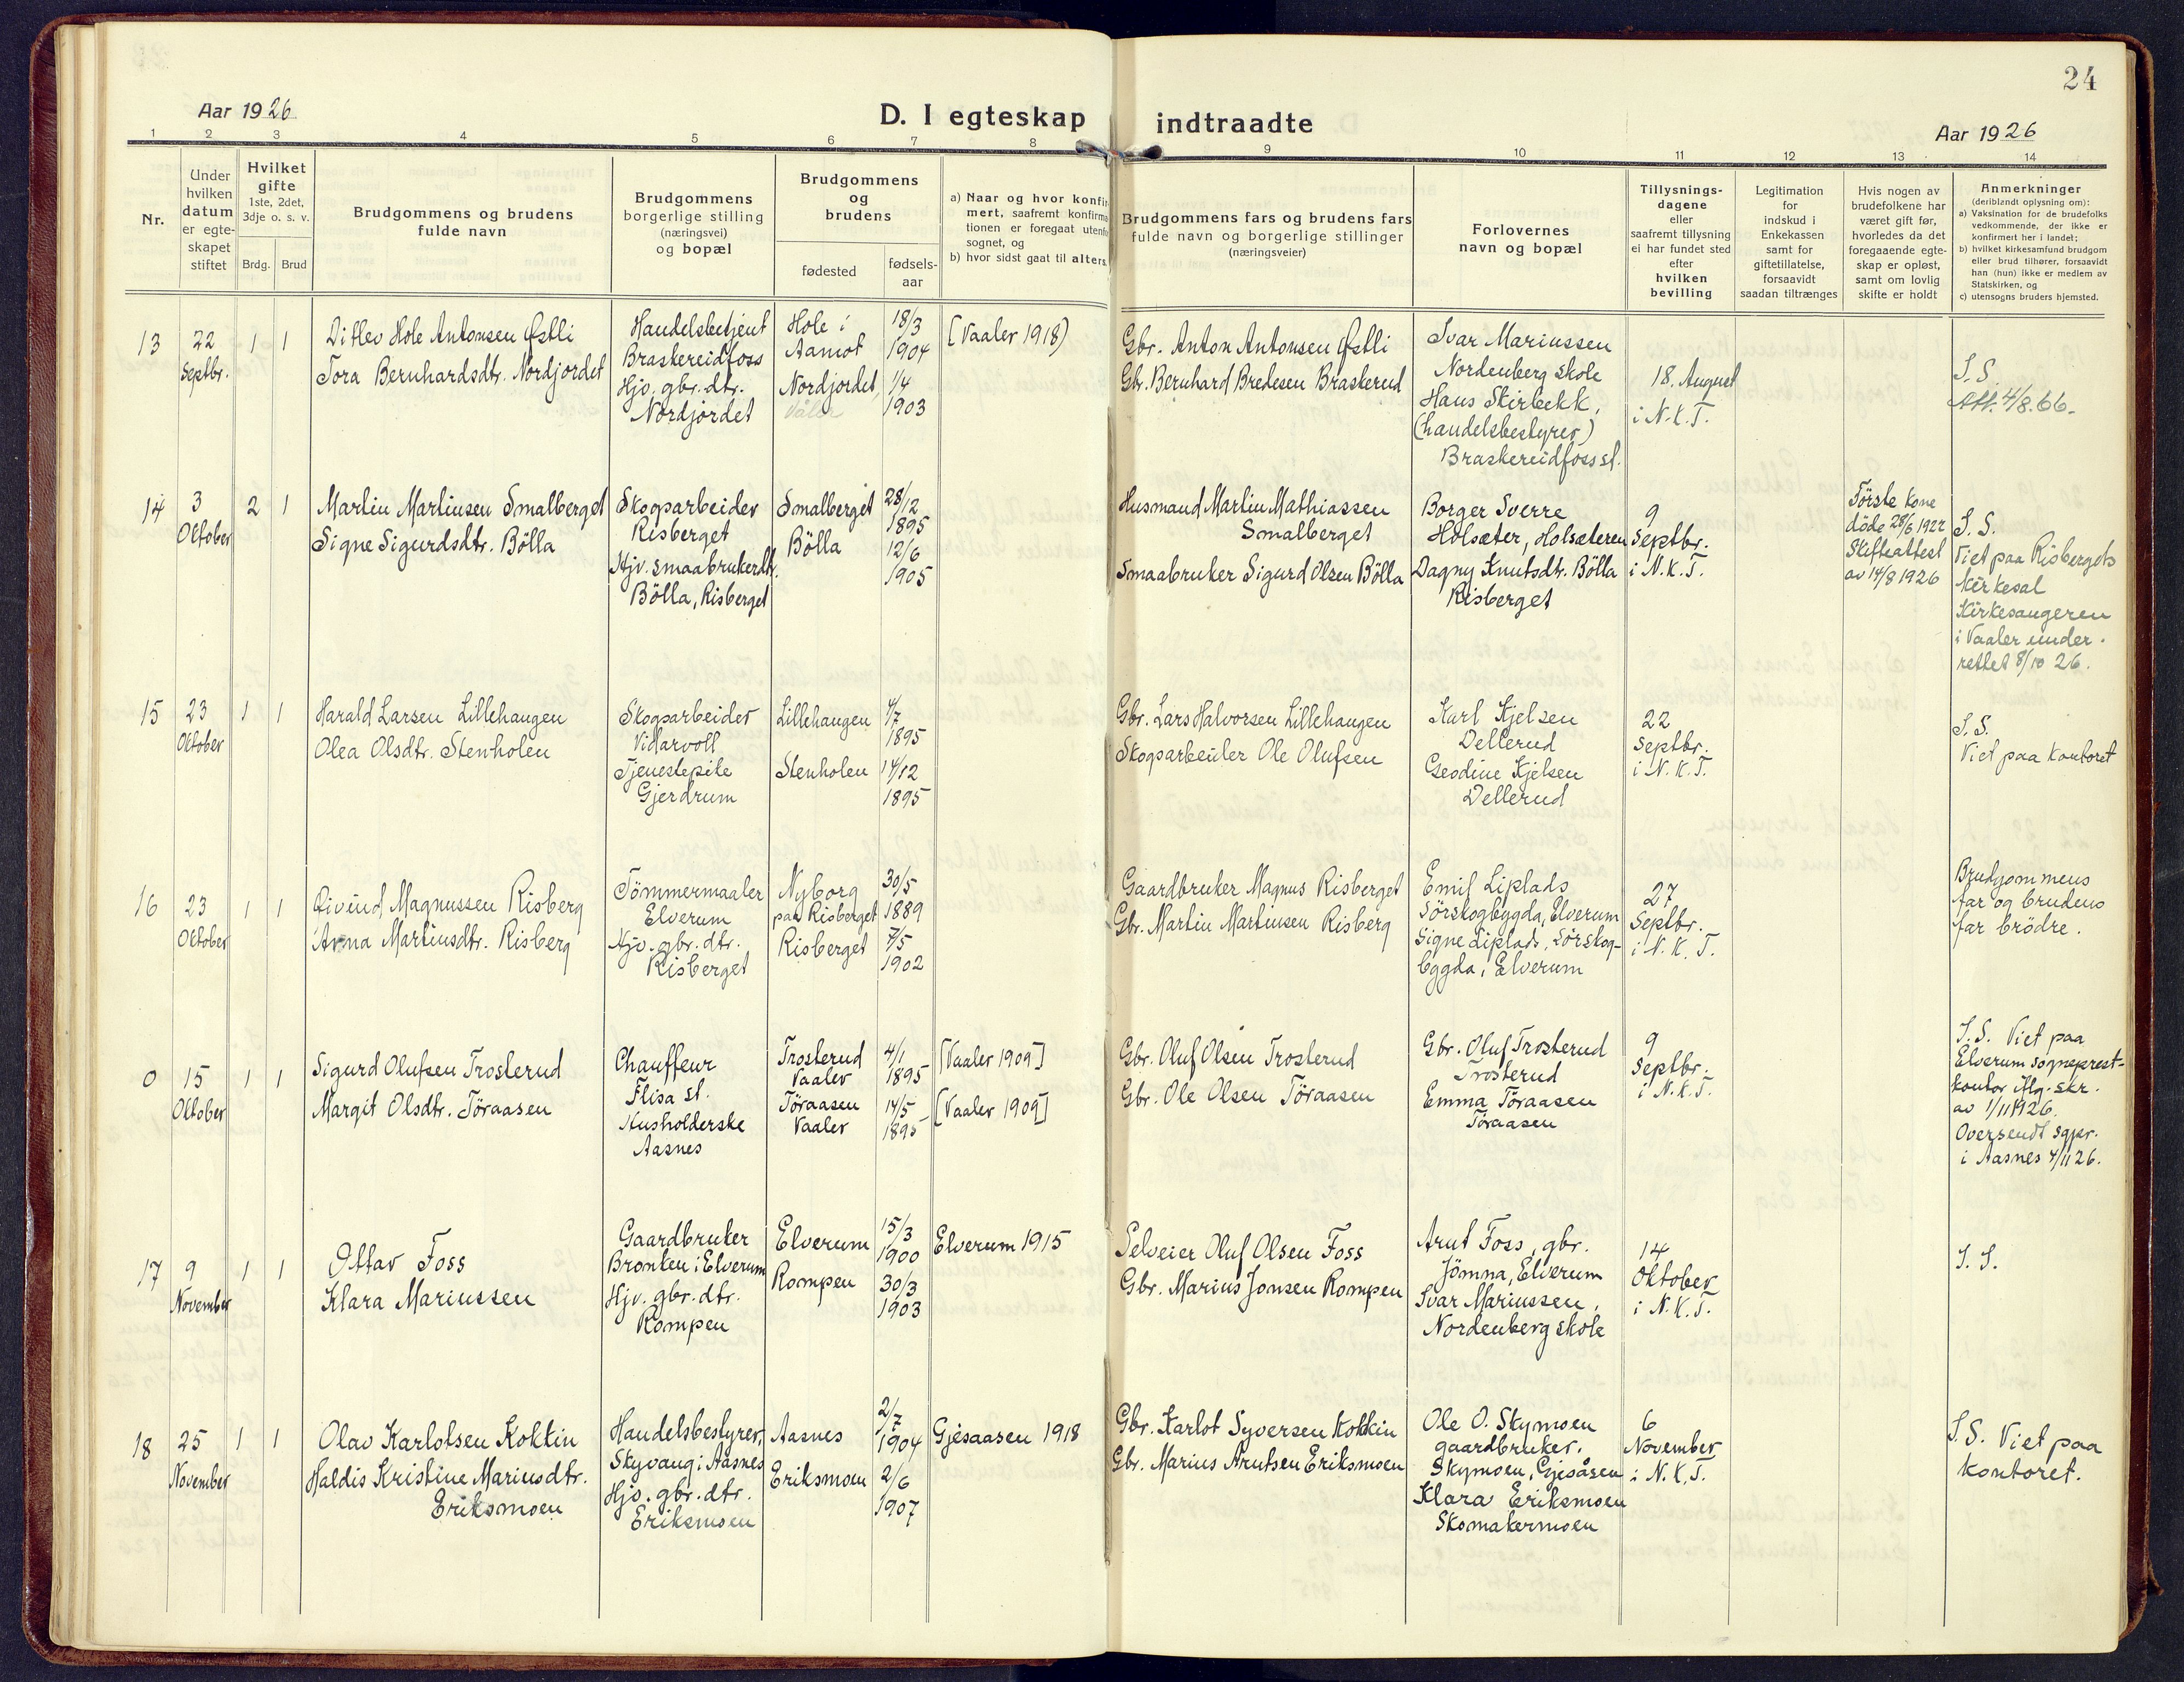 24
Aar 1926
D. I egteskap indtraadte
Aar 1926
1 2 3 4 5 6 7 8 9 10 11 12 13 14
Nr.
Under
hvilken
datum
er egte-
skapet
stiftet
Hvilket
gifte
1ste, 2det,
3dje o. s. v.
Brdg. Brud
Brudgommens og brudens
fulde navn
Brudgommens
borgerlige stilling
(næringsvei)
og bopæl
Brudgommens
og
brudens
fødested
fødsels-
aar
a) Naar og hvor konfir
mert, saafremt konfirma
tionen er foregaat utenfo
sognet, og
b) hvor sidst gaat til alters.
Brudgommens fars og brudens fars
fulde navn og borgerlige stillinger
(næringsveier)
Forlovernes
navn og bopæl
Tillysnings-
dagene
eller
saafremt tillysning
ei har fundet sted
efter
hvilken
bevilling
Legitimation
for
indskud i
Enkekassen
samt for
giftetillatelse,
forsaavidt
saadan tiltrænges
Hvis nogen av
brudefolkene har
været gift før,
hvorledes da det
foregaaende egte-
skap er opløst,
samt om lovlig
skifte er holdt
Anmerkninger
(deriblandt oplysning om):
a) Vaksination for de brudefolks
vedkommende, der ikke er
konfirmert her i landet;
b) hvilket kirkesamfund brudgom
eller brud tilhører, forsaavidt
han (hun) ikke er medlem av
Statskirken, og
c) utensogns bruders hjemsted.
13
22
Septbr.
1 1
Ditlev Hole Antonsen Østli
Tora Bernhardsdtr. Nordjordet
Handelsbetjent
Braskereidfoss
Hjv. gbr. dtr.
Nordjordet
Hole i
Aamot
Nordjordet,
Våler
18/3
1904
1/4
1903
[Vaaler 1918)
Gbr. Anton Antonsen Østli
Gbr. Bernhard Bredesen Braskerud
Ivar Mariussen
Nordenberg skole
Hans Skirbekk,
(handelsbestyrer)
Braskereidfoss st.
18. August
i N.K.T.
I.S.
Att. 4/8.66.
14
3
Oktober
2 1
Martin Martinsen Smalberget
Signe Sigurdsdtr. Bölla
Skogsarbeider
Risberget
Hjv. smaabrukerdtr.
Bölla, Risberget
Smalberget
Bölla
28/12
1895
12/6
1905
Husmand Martin Mathiassen
Smalberget
Smaabruker Sigurd Olsen Bölla
Borger Sverre
Holsæter, Holsæteren
Dagny Knutsdtr. Bölla
Risberget
9
Septbr.
i N.K.T.
Förste kone
döde 28/6 1922
Skifteattest
av 14/8 1926
I. S.
Viet paa Risbergets
kirkesal
Kirkesangeren
i Vaaler under-
rettet 8/10 26.
15
23
Oktober
1 1
Harald Larsen Lillehaugen
Olea Olsdtr. Stenholen
Skogsarbeider
Vidarvoll
Tjenestepike
Gjerdrum
Lillehaugen
Stenholen
4/7
1895
14/12
1895
Gbr. Lars Halvorsen Lillehaugen
Skogsarbeider Ole Olufsen
Karl Kjelsen
Dellerud
Geodine Kjelsen
Dellerud
22
Septbr.
i N.K.T.
I.S.
Viet paa kontoret
16
23
Oktober
1 1
Øivind Magnussen Risberg
Anna Martinsdtr. Risberg
Tömmermaaler
Elverum
Hjv. gbr. dtr.
Risberget
Nyborg
paa Risberget
Risberget
30/5
1889
7/5
1902
Gaardbruker Magnus Risberget
Gbr. Martin Martinsen Risberg
Emil Liplads
Sörskogbygda, Elverum
Signe Liplads, Sörskog-
bygda, Elverum
27
Septbr.
i N.K.T.
Brudgommens
far og brudens
far brödre.
0
15
Oktober
1 1
Sigurd Olufsen Trosterud
Margit Olsdtr. Töraasen
Chauffeur
Flisa st.
Husholderske
Aasnes
Trosterud
Vaaler
Töraasen
Vaaler
4/1
1895
14/5
1895
[Vaaler 1909]
[Vaaler 1909]
Gbr. Oluf Olsen Trosterud
Gbr. Ole Olsen Töraasen
Gbr. Oluf Trosterud
Trosterud
Emma Töraasen
Töraasen
9
Septbr.
i N.K.T.
I.S. Viet paa
Elverum sogneprest-
kontor iflg. skr.
av 1/11 1926.
Oversendt sgpr.
i Aasnes 4/11 26.
17
9
November
1 1
Ottar Foss
Klara Mariussen
Gaardbruker
Bronken i Elverum
Hjv. gbr. dtr.
Rompen
Elverum
Rompen
15/3
1900
30/3
1903
Elverum 1915
Selveier Oluf Olsen Foss
Gbr. Marius Jonsen Rompen
Arut Foss, gbr.
Jömna, Elverum
Ivar Mariussen,
Nordenberg skole
14
Oktober
i N.K.T.
I. S.
18
25
November
1 1
Olav Karlotsen Koktin
Haldis Kristine Mariusdtr.
Eriksmoen
Handelsbestyrer,
Skyvang i Aasnes
Hjv. gbr. dtr.
Eriksmoen
Aasnes
Eriksmoen
2/7
1904
2/6
1907
Gjesaasen 1918
Gbr. Karlot Syversen Kokkin
Gbr. Marius Arutsen Eriksmoen
Ole O. Skymoen
gaardbruker,
Skymoen, Gjesåsen
Klara Eriksmoen
Skomakermoen
6
November
i N.K.T.
I.S. Viet paa
kontoret.